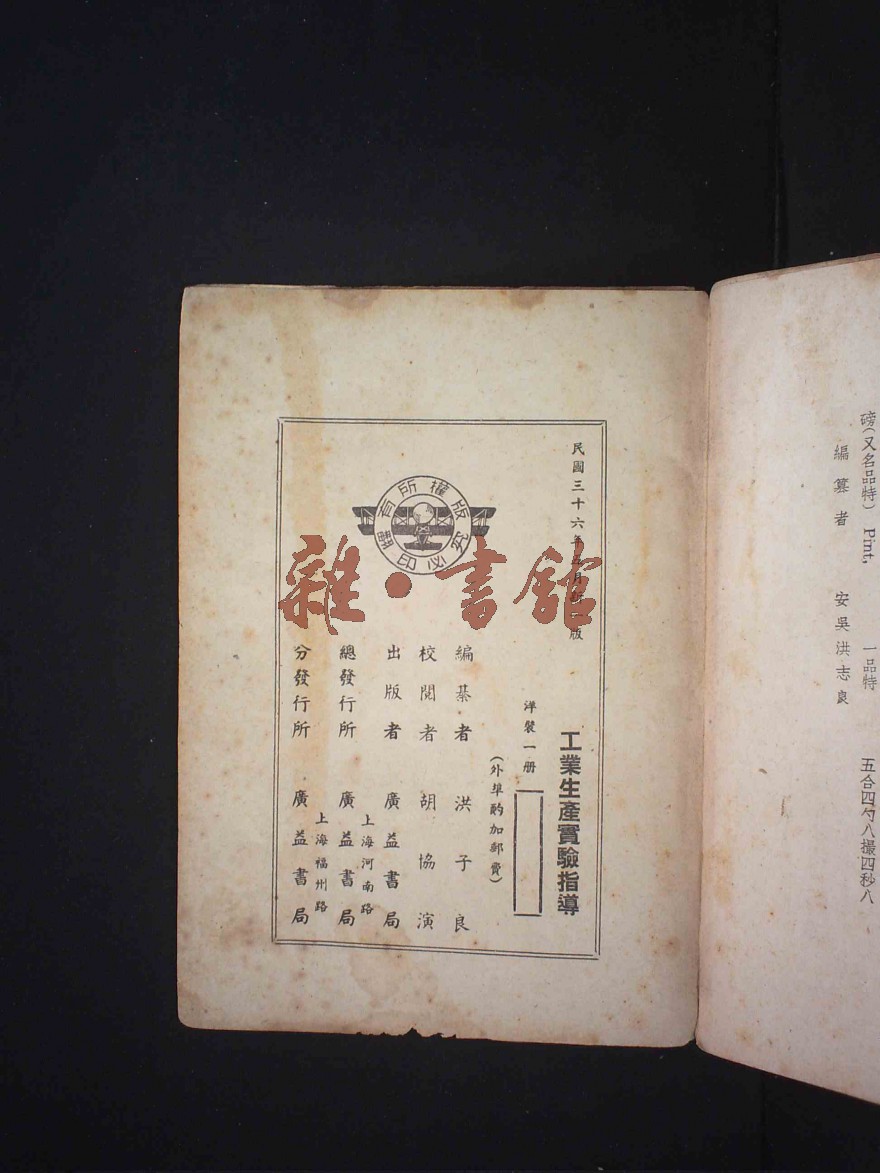 磅(又名品特) Pint, 一品特 五合四勺八撮四秒八
編纂者 安吳洪志良
民國三十六年五月新一版
工業生產實驗指導
洋裝一册
(外埠酌加郵費)
編纂者 洪子良
校閱者 胡協演
出版者 廣益書局
上海河南路
總發行所 廣益書局
上海福州路
分發行所 廣益書局
版權所有
翻印必究
雜·書館